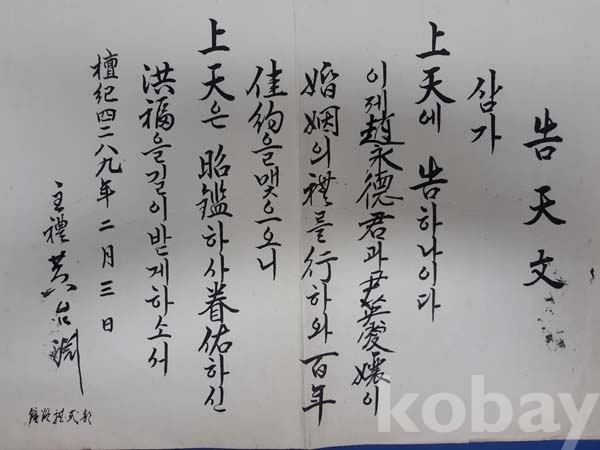 告天文
삼가
上天에 告하나이다
이제趙永德君과尹英愛孃이
婚姻의禮를行하와百年
佳約을맺으오니
上天은 昭鑑하사眷佑하신
洪福을길이받게하소서
檀紀四二八九年 二月 三日
主禮 黃
禮式部
kobay